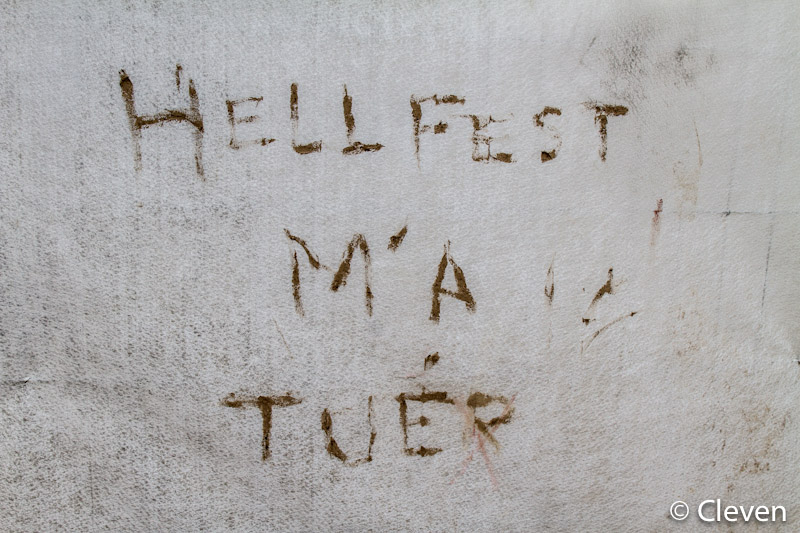 HELLFEST
M'A
TUÉR
© Cleven